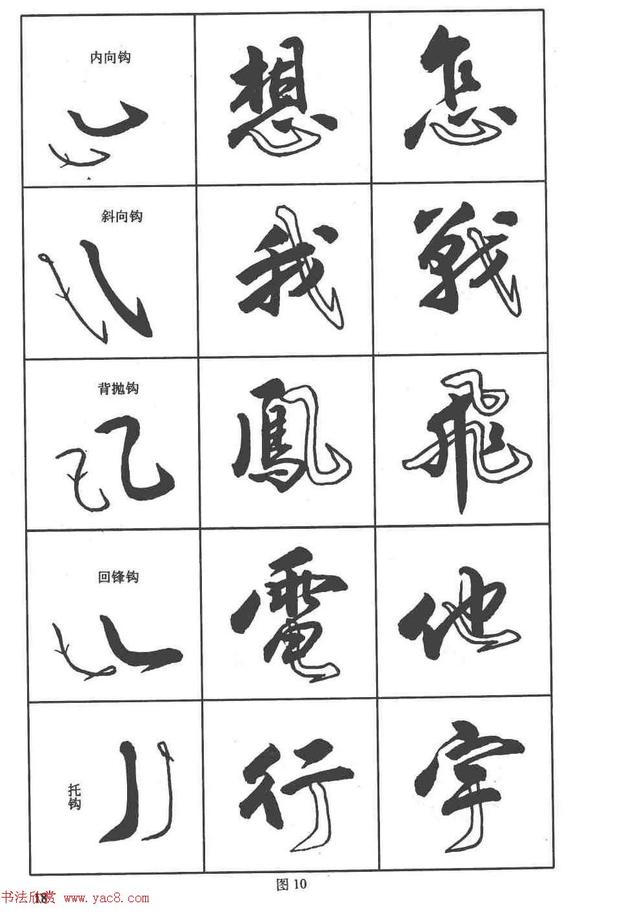 内向钩 想 怎
斜向钩 我 戦
背抛钩 鳳 飛
回锋钩 電 他
托钩 行 宇
图 10
18
书法欣赏 www.yac8.com